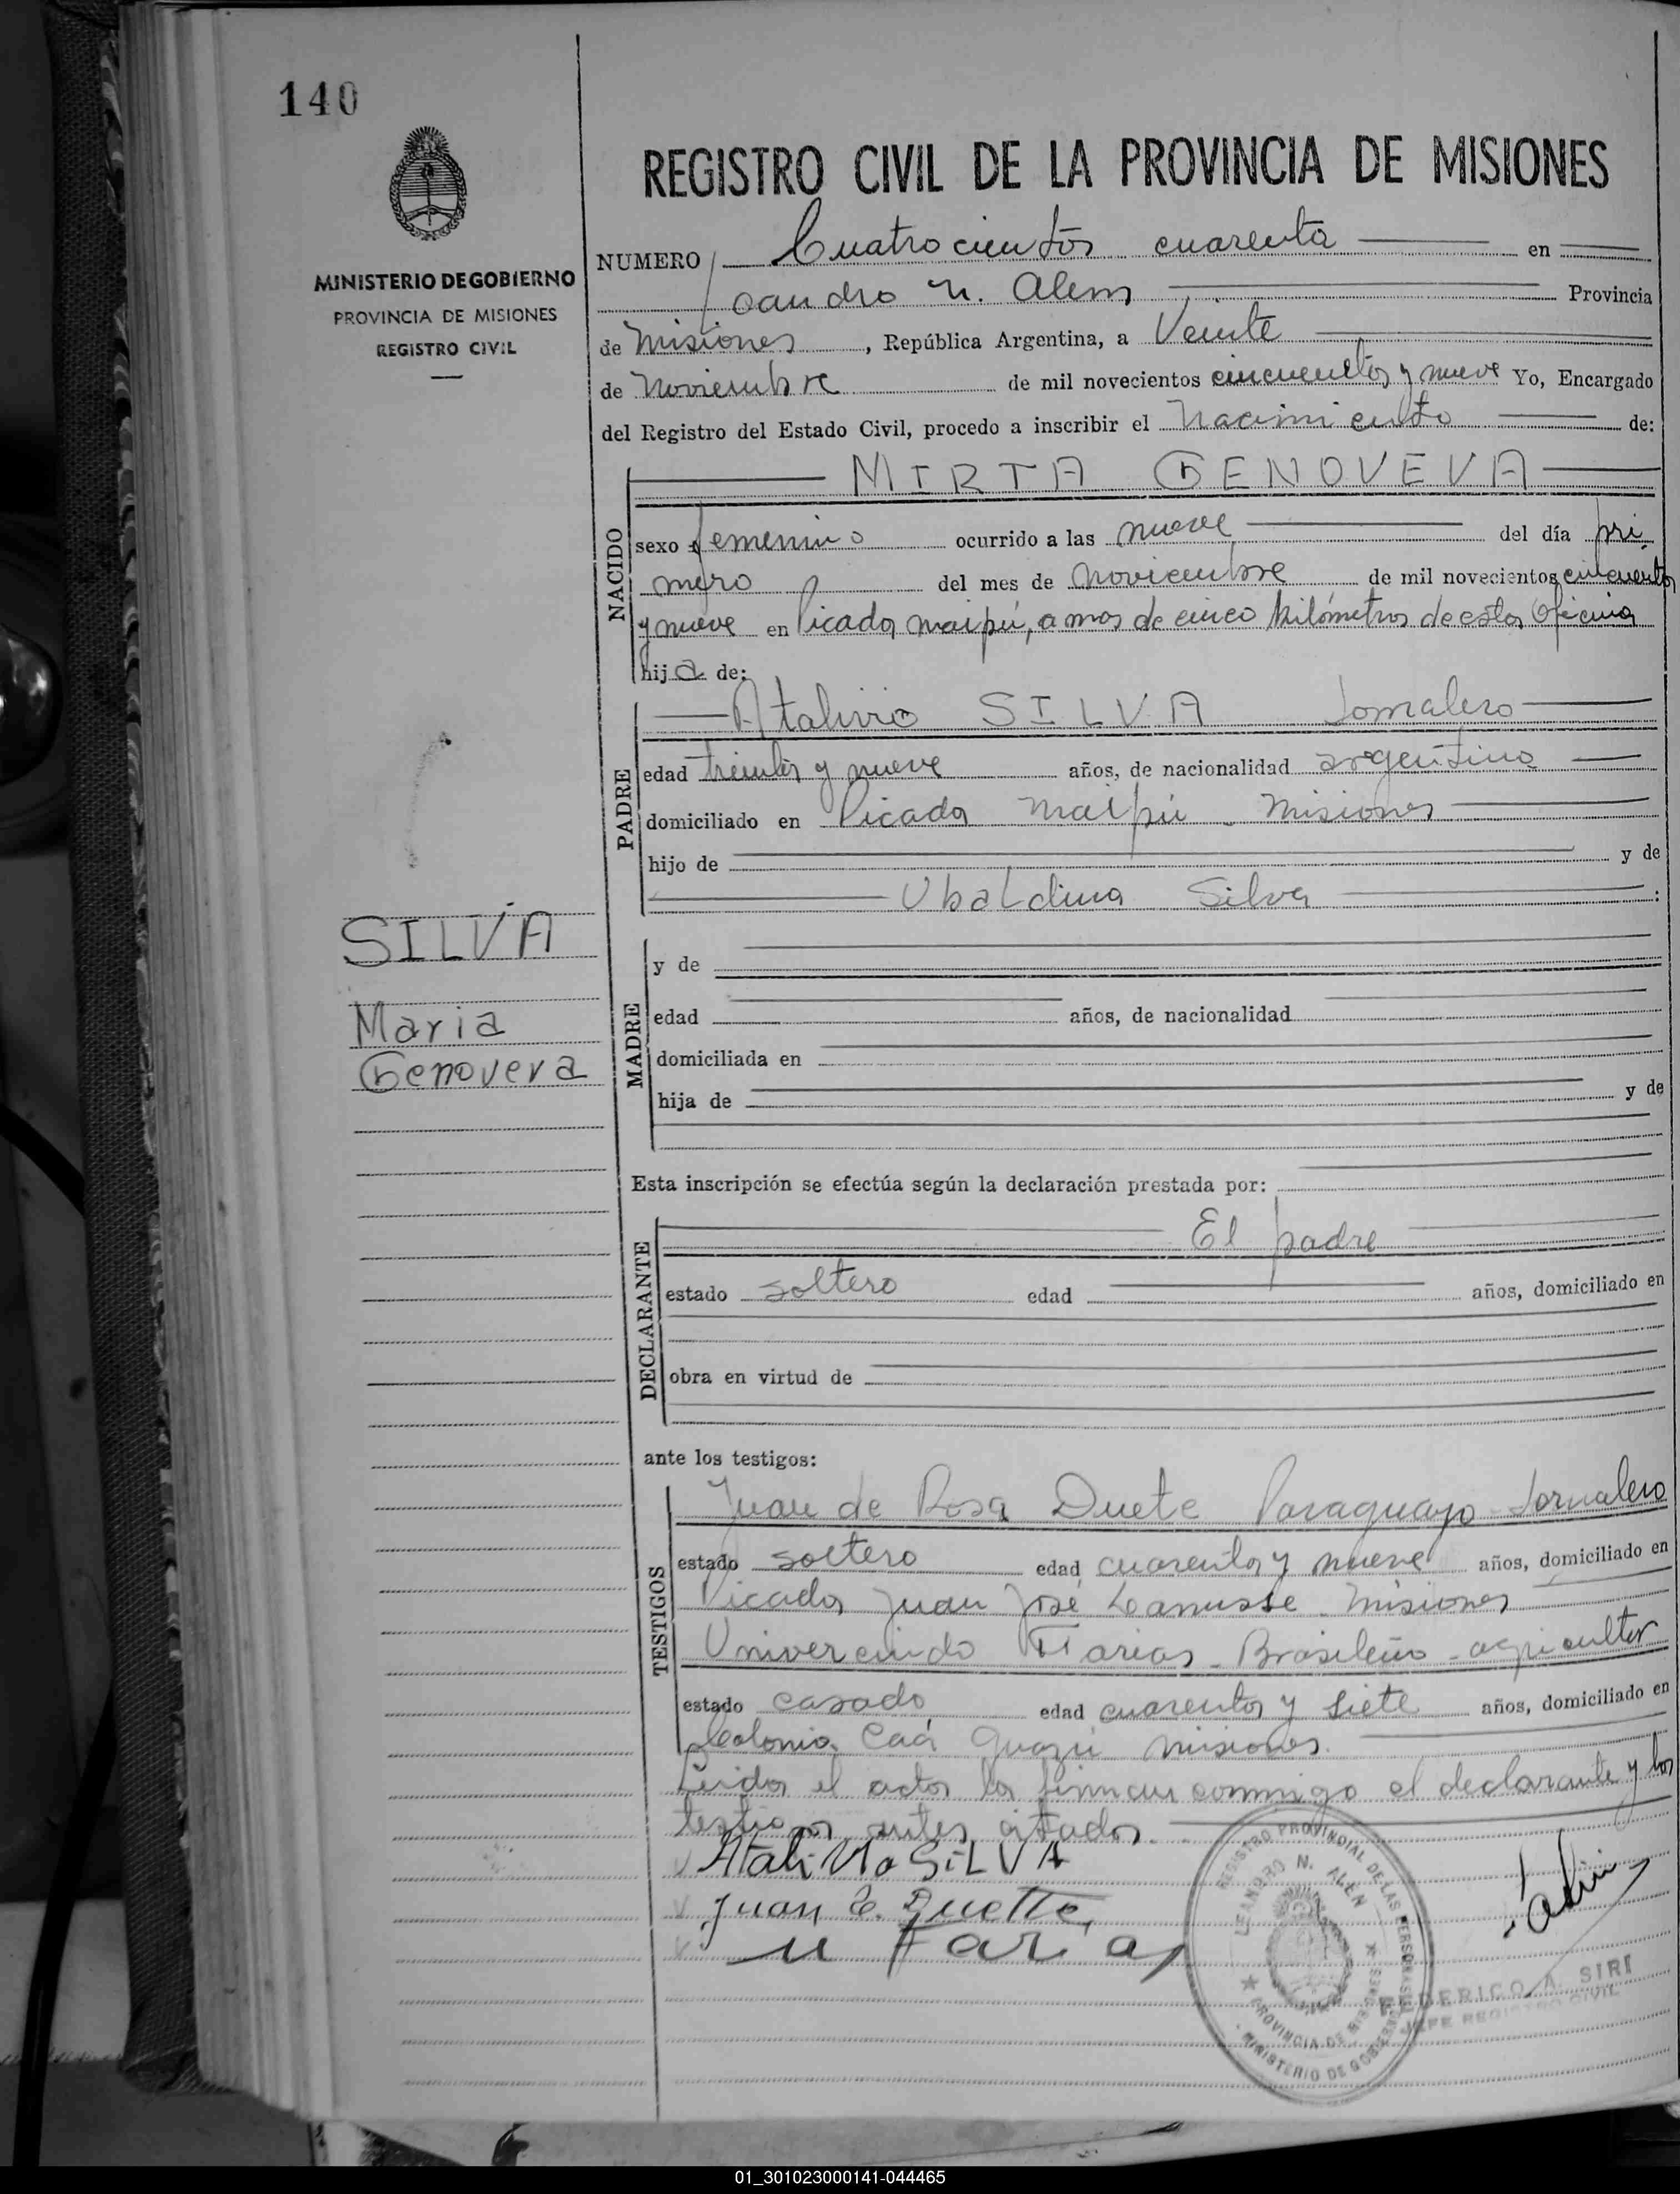 140
REGISTRO CIVIL DE LA PROVINCIA DE MISIONES
MINISTERIO DE GOBIERNO
PROVINCIA DE MISIONES
REGISTRO CIVIL
NUMERO Cuatrocientos cuarenta en
Leandro N. Alem Provincia
de Misiones, República Argentina, a Veinte
de Noviembre de mil novecientos cincuenta y nueve Yo, Encargado
del Registro del Estado Civil, procedo a inscribir el Nacimiento de:
NACIDO
MIRTA GENOVEVA
sexo femenino ocurrido a las nueve del día pri
mero del mes de noviembre de mil novecientos cincuenta
y nueve en Picada Maipú, a mas de cinco kilómetros de esta Oficina
hija de:
PADRE
Atalivio SILVA Jornalero
edad treinta y nueve años, de nacionalidad argentina
domiciliado en Picada Maipú - Misiones
hijo de y de
Ubaldina Silva :
SILVA
Maria
Genoveva
MADRE
y de
edad años, de nacionalidad
domiciliada en
hija de y de
Esta inscripción se efectúa según la declaración prestada por:
DECLARANTE
El padre
estado soltero edad años, domiciliado en
obra en virtud de
ante los testigos:
TESTIGOS
Juan de Rosa Duete Paraguayo - Jornalero
estado soltero edad cuarenta y nueve años, domiciliado en
Picada Juan José Lanusse - Misiones
Univercindo Farias - Brasileño - agricultor
estado casado edad cuarenta y siete años, domiciliado en
Colonia Caá Guazú Misiones.
Leida el acta la firman conmigo el declarante y los
testigos antes citados.
Atalivio SiLVA
Juan Duette
u Farias
REGISTRO PROVINCIAL DE LAS PERSONAS
LEANDRO N. ALEN
PROVINCIA DE MISIONES
MINISTERIO DE GOBIERNO
FEDERICO A. SIRI
JEFE REGISTRO CIVIL
01_301023000141-044465